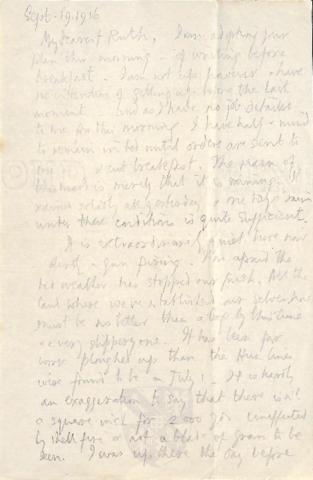 Sept. 19. 1916
My dearest Ruth, I am adopting your
plan this morning – of writing before
breakfast. I am not up however & have
no intention of getting up before the last
moment and as I have no job
to me for this morning I have half a mind
to remain in bed until orders are sent to
me about breakfast. The reason of
this mood is merely that it is raining. It
rained solidly all yesterday & one day's rain
under these conditions is quite sufficient.
It is extraordinarily quiet here now
a gun firing. I'm afraid the
weather has stopped our push. All the
land where we've established ourselves now
must be no better than a bog by this time
& a very slippery one. It has been far
worse ploughed up than the Hun lines
were found to be on July 1. It is hardly
an exaggeration to say that there isn't
a square inch for 2000 yds unaffected
by shell fire or not a blade of grass to be
seen. I was up there the day before